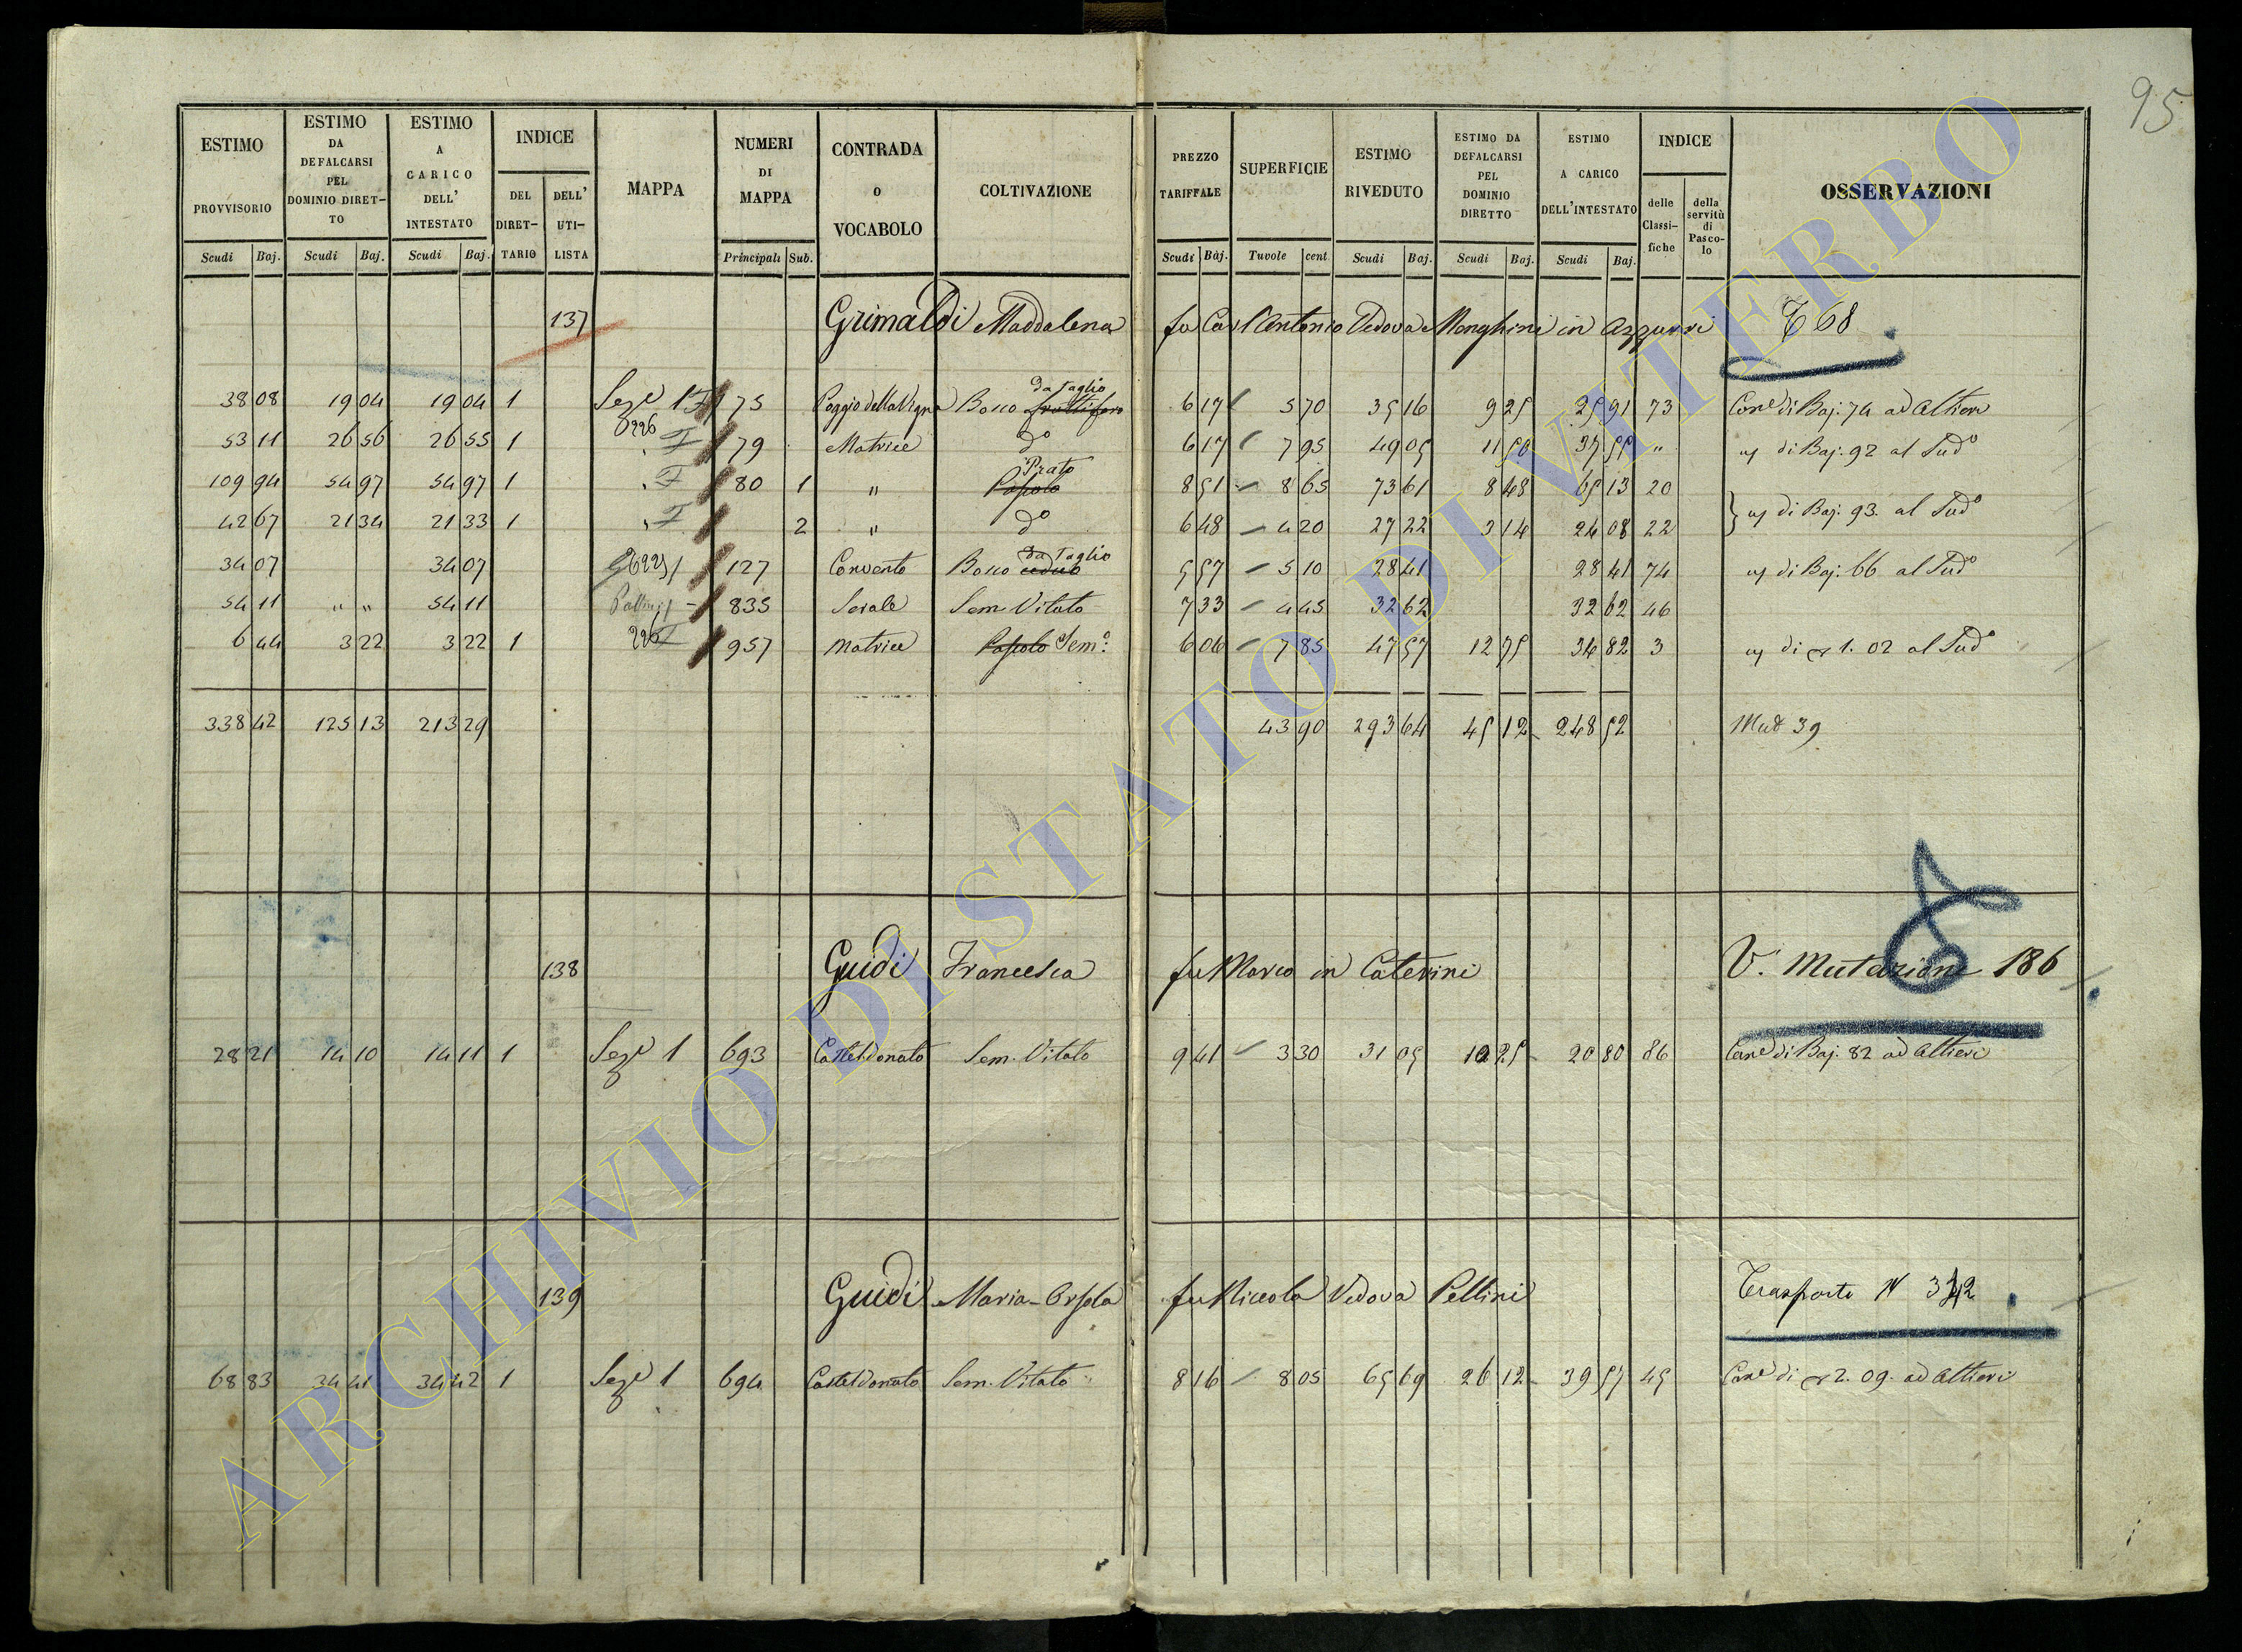 95
ESTIMO PROVVISORIO Scudi Baj.
ESTIMO DA DEFALCARSI PEL DOMINIO DIRETTO Scudi Baj.
ESTIMO A CARICO DELL' INTESTATO Scudi Baj.
INDICE DEL DIRETTARIO DELL' UTILISTA
MAPPA
NUMERI DI MAPPA Principali Sub.
CONTRADA o VOCABOLO
COLTIVAZIONE
PREZZO TARIFFALE Scudi Baj.
SUPERFICIE Tavole cent.
ESTIMO RIVEDUTO Scudi Baj.
ESTIMO DA DEFALCARSI PEL DOMINIO DIRETTO Scudi Baj.
ESTIMO A CARICO DELL'INTESTATO Scudi Baj.
INDICE delle Classifiche della servitù di Pascolo
OSSERVAZIONI
137 Grimaldi Maddalena fu Carl'Antonio Vedova Menghini in Azzurri T 68
38 08 19 04 19 04 1 Sez.e 1 F 75 Poggio della Vigna Bosco da Taglio 6 17 5 70 35 16 9 25 25 91 73 Cone di Baj. 74 ad Altieri
53 11 26 56 26 55 1 226 F 79 Matrice do 6 17 7 95 49 05 11 50 37 55 " di Baj. 92 al Sudo
109 94 54 97 54 97 1 F 80 1 " Pascolo Prato 8 51 8 65 73 61 8 48 65 13 20
42 67 21 34 21 33 1 F 2 " do 6 48 4 20 27 22 3 14 24 08 22 di Baj. 93 al Sudo
34 07 34 07 127 Convento Bosco ceduo da Taglio 5 57 5 10 28 41 28 41 74 di Baj. 66 al Sudo
54 11 " " 54 11 835 Sem. Vitato 7 33 4 45 32 62 32 62 46
6 44 3 22 3 22 1 226 F 957 Matrice Pascolo Sem.o 6 06 7 85 47 57 12 75 34 82 3 di 1. 02 al Sudo
338 42 125 13 213 29 43 90 293 64 45 12 248 52 39
138 Guidi Francesca fu Marco in Caterini V. Mutazione 186
28 21 14 10 14 11 1 Sez.e 1 693 Casteldonato Sem. Vitato 9 41 3 30 31 05 10 25 20 80 86 Cone di Baj. 82 ad Altieri
139 Guidi Maria-Orsola fu Niccola Vedova Pellini Trasporto N 342
68 83 34 41 34 42 1 Sez.e 1 694 Casteldonato Sem. Vitato 8 16 8 05 65 69 26 12 39 57 45 Cone di 2. 09. ad Altieri
ARCHIVIO DI STATO DI VITERBO